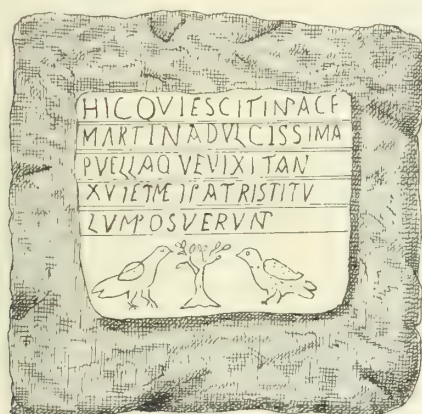 HIC QVIESCIT IN PACE
MARTINA DVLCISSIMA
PVELLA QVE VIXIT AN
XVI ET M EI PATRIS TITV
LVM POSVERVNT